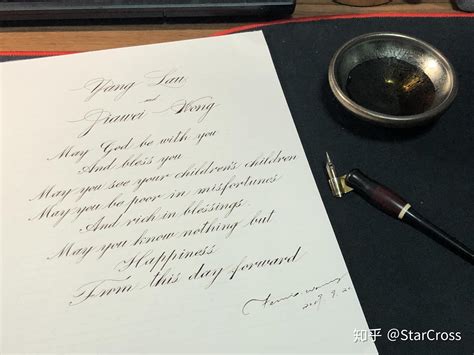 Yang Lau
and
Jiawei Kong
May God be with you
And bless you
May you see your children's children
May you be poor in misfortunes
And rich in blessings
May you know nothing but
Happiness
From this day forward
知乎 @StarCross